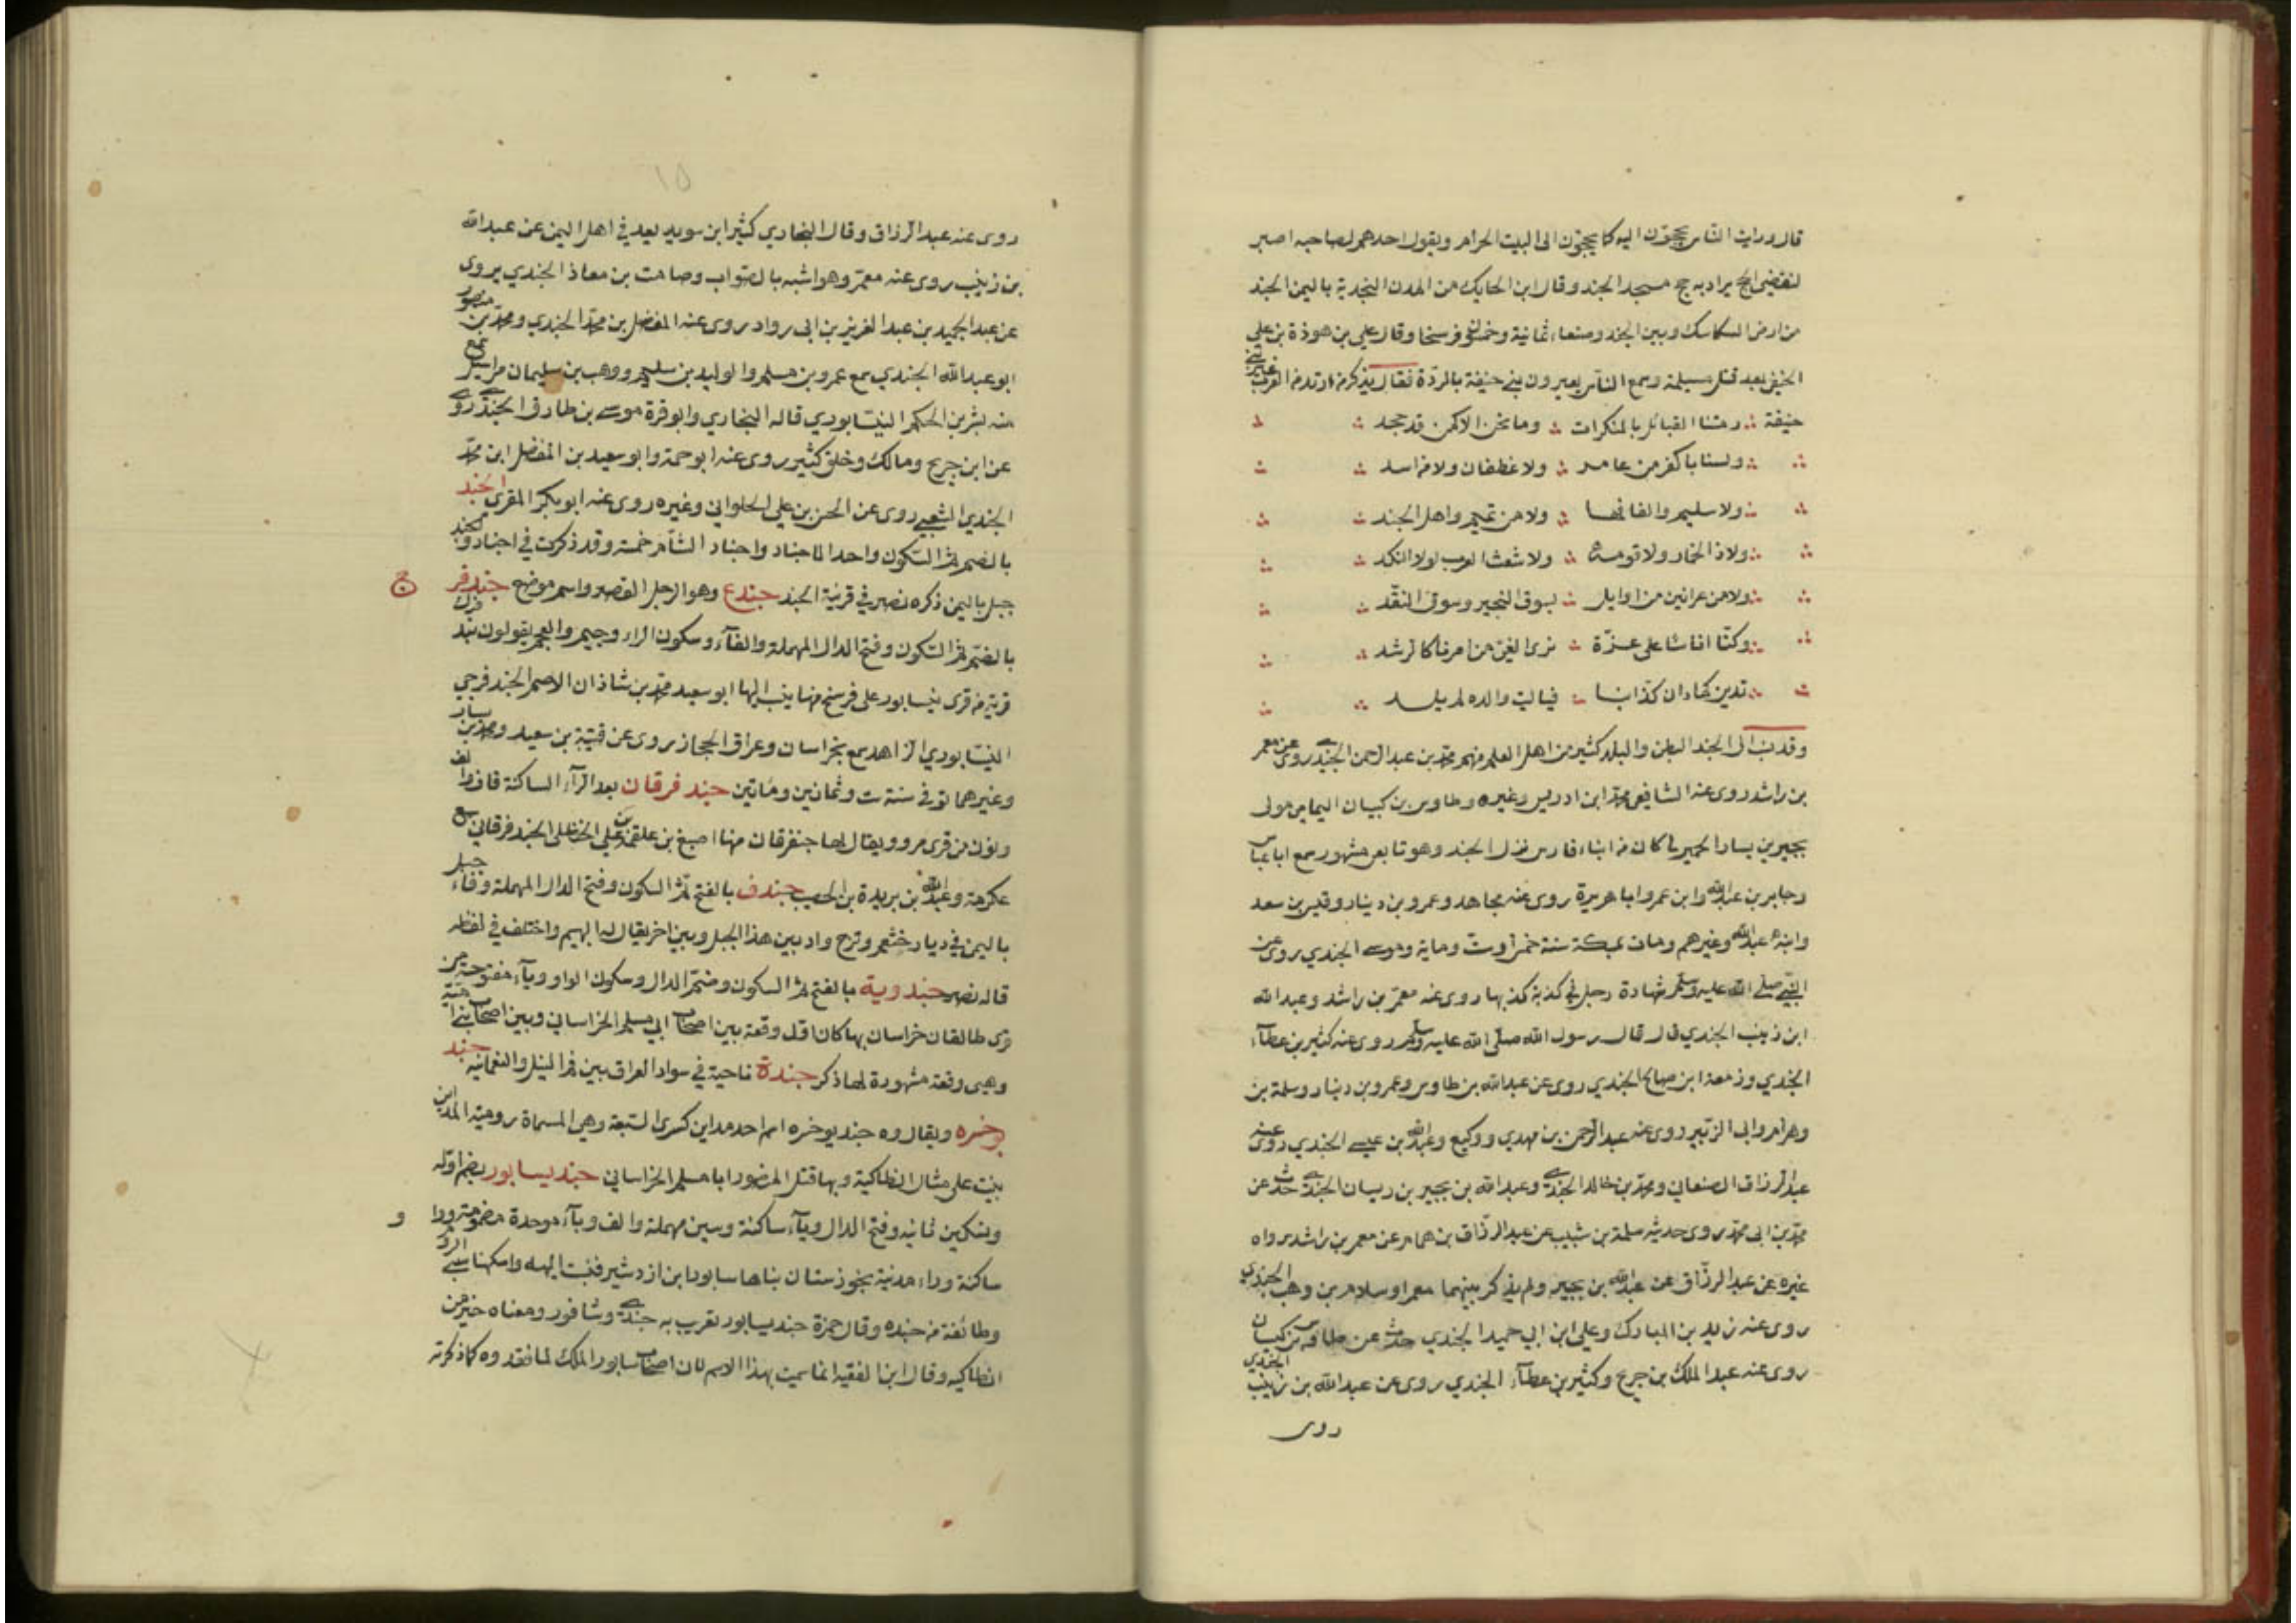 قال ورايت الناس يحجون اليه كما يحجون الى البيت الحرام ويقول احدهم لصاحبه اصبر
لينقضى الحج يراد به حج مسجد الجند وقال ابن الحايك من المدن النجدية باليمن الجند
من ارض السكاسك وبين الجند وصنعاء ثمانية وخمسون فرسخا وقال علي بن هوذة بن علي
الحنفي بعد قتل مسيلمة وسمع الناس يعيرون بني حنيفة بالردة فقال يذكر من ارتد من العرب غير بني
حنيفة رمتنا القبائل بالمنكرات وما نحن الا كمن قد جحد
ولسنا باكفر من عامر ولا غطفان ولا من اسد
ولا سليم والفافها ولا من تميم واهل الجند
ولا ذا الخمار ولا قومه ولا شعث العرب لولا النكد
ولا من عرانين من اوايل بسوق النجير وسوق النقد
وكنا اناسا على عزة نرى الغي من امرنا كالرشد
ندين كما دان كذابنا فياليت والده لم يلد
وقد نسب الى الجند البطن والبلد كثير من اهل العلم منهم محمد بن عبد الرحمن الجندي روى عن معمر
بن راشد روى عنه الشافعي محمد ابن ادريس وغيره وطاوس بن كيسان اليماني مولى
بجير بن يسار الحميري كان من ابناء فارس نزل الجند وهو تابعي مشهور سمع ابا عباس
وجابر بن عبد الله وابن عمر وابا هريرة روى عنه مجاهد وعمرو بن دينار وقيس بن سعد
وابنه عبد الله وغيرهم ومات بمكة سنة خمس او ست وماية وموسى الجندي روى عن
النبي صلى الله عليه وسلم شهادة رجل في كذبة كذبها روى عنه معمر بن راشد وعبد الله
ابن زينب الجندي قال قال رسول الله صلى الله عليه وسلم روى عنه كثير بن عطاء
الجندي وزمعة ابن صالح الجندي روى عن عبد الله بن طاوس وعمرو بن دينار وسلمة بن
وهرام وابي الزبير روى عنه عبد الرحمن بن مهدي ووكيع وعبد الله بن عيسى الجندي روى عنه
عبد الرزاق الصنعاني ومحمد بن خالد الجندي وعبد الله بن بجير بن ريسان الجندي حدث عن
محمد بن ابي محمد روى حديثه سلمة بن شبيب عن عبد الرزاق بن همام عن معمر بن راشد رواه
غيره عن عبد الرزاق عن عبد الله بن بجير ولم يذكر بينهما معمرا وسلام بن وهب الجندي
روى عنه زيد بن المبارك وعلي ابن ابي حميد الجندي حدث عن طاوس بن كيسان
روى عنه عبد الملك بن جريح وكثير بن عطاء الجندي روى عن عبد الله بن زينب الجندي
روى
١٥
روى عنه عبد الرزاق وقال البخاري كثير ابن سويد يعد في اهل اليمن عن عبد الله
بن زينب روى عنه معمر وهو اشبه بالصواب وصامت بن معاذ الجندي يروى
عن عبد المجيد بن عبد العزيز بن ابى رواد روى عنه المفضل بن محمد الجندي ومحمد بن منصور
ابو عبد الله الجندي سمع عمرو بن مسلم والوليد بن سليم ووهب بن سليمان مراسيل سمع
منه بشر بن الحكم النيسابوري قاله البخاري وابو قرة موسى بن طارق الجندي روى
عن ابن جريح ومالك وخلق كثير روى عنه ابو حمة وابو سعيد بن المفضل ابن محمد
الجندي الشعبي روى عن الحسن بن علي الحلواني وغيره روى عنه ابو بكر المقري الجند
بالضم ثم السكون واحد الاجناد واجناد الشام خمسة وقد ذكرت في اجناد وجند
جبل باليمن ذكره نصر في قرينة الجند جندع وهو الرجل القصير واسم موضع جندفر
ج
بالضم ثم السكون وفتح الدال المهملة والفاء وسكون الراء وجيم والعجم يقولون بند فرك
قرية من قرى نيسابور على فرسخ منها ينسب اليها ابو سعيد محمد بن شاذان الاصم الجندفرجي
النيسابوري الزاهد سمع بخراسان وعراق الحجاز روى عن قتيبة بن سعيد ومحمد بن بسار
وغيرهما توفي سنة ست وثمانين ومائتين جندفرقان بعد الراء الساكنة قاف والف
ونون من قرى مرو ويقال لها جنفرقان منها اصبغ بن علقمة بن علي الحنظلي الجندفرقاني سمع
عكرمة وعبد الله بن بريدة بن الحصيب جندف بالفتح ثم السكون وفتح الدال المهملة وفاء جبل
باليمن في ديار خثعم وترج واد بين هذا الجبل وبين اخر يقال له البهيم واختلف في لفظه
قاله نصر جندوية بالفتح ثم السكون وضم الدال وسكون الواو وياء مفتوحة من
قرى طالقان خراسان بها كان اول وقعة بين اصحاب ابي مسلم الخراساني وبين اصحاب بني امية
وهى وقعة مشهورة لها ذكر جندة ناحية في سواد العراق بين فم النيل والنعمانيه جند
يوخره ويقال وه جند يوخره اسم احد مداين كسرى السبعة وهي المسماة رومية المداين
بنيت على مثال انطاكية وبها قتل المنصور ابا مسلم الخراساني جنديسابور بضم اوله
وتسكين ثانيه وفتح الدال وياء ساكنة وسين مهملة والف وباء موحدة مضمومة وواو
و
ساكنة وراء مدينة بخوزستان بناها سابور ابن ازدشير فنسبت اليه واسكنها سبي الروم
وطائفة من جنده وقال حمزة جنديسابور تعريب به جندي وشافور ومعناه خير من
انطاكيه وقال ابن الفقيه انما سميت بهذا الاسم لان اصحاب سابور الملك لما فقدوه كما ذكرته